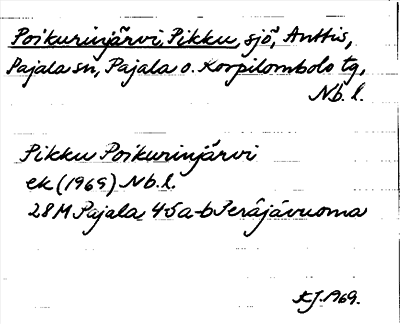 Poikurinjärvi, Pikku, sjö, Anttis,
Pajala sn, Pajala o. Korpilombolo tg,
Nb. l.
Pikku Poikurinjärvi
ek (1969) Nb. l.
28M Pajala 4-5a-b Peräjävuoma
KJ. 1969.